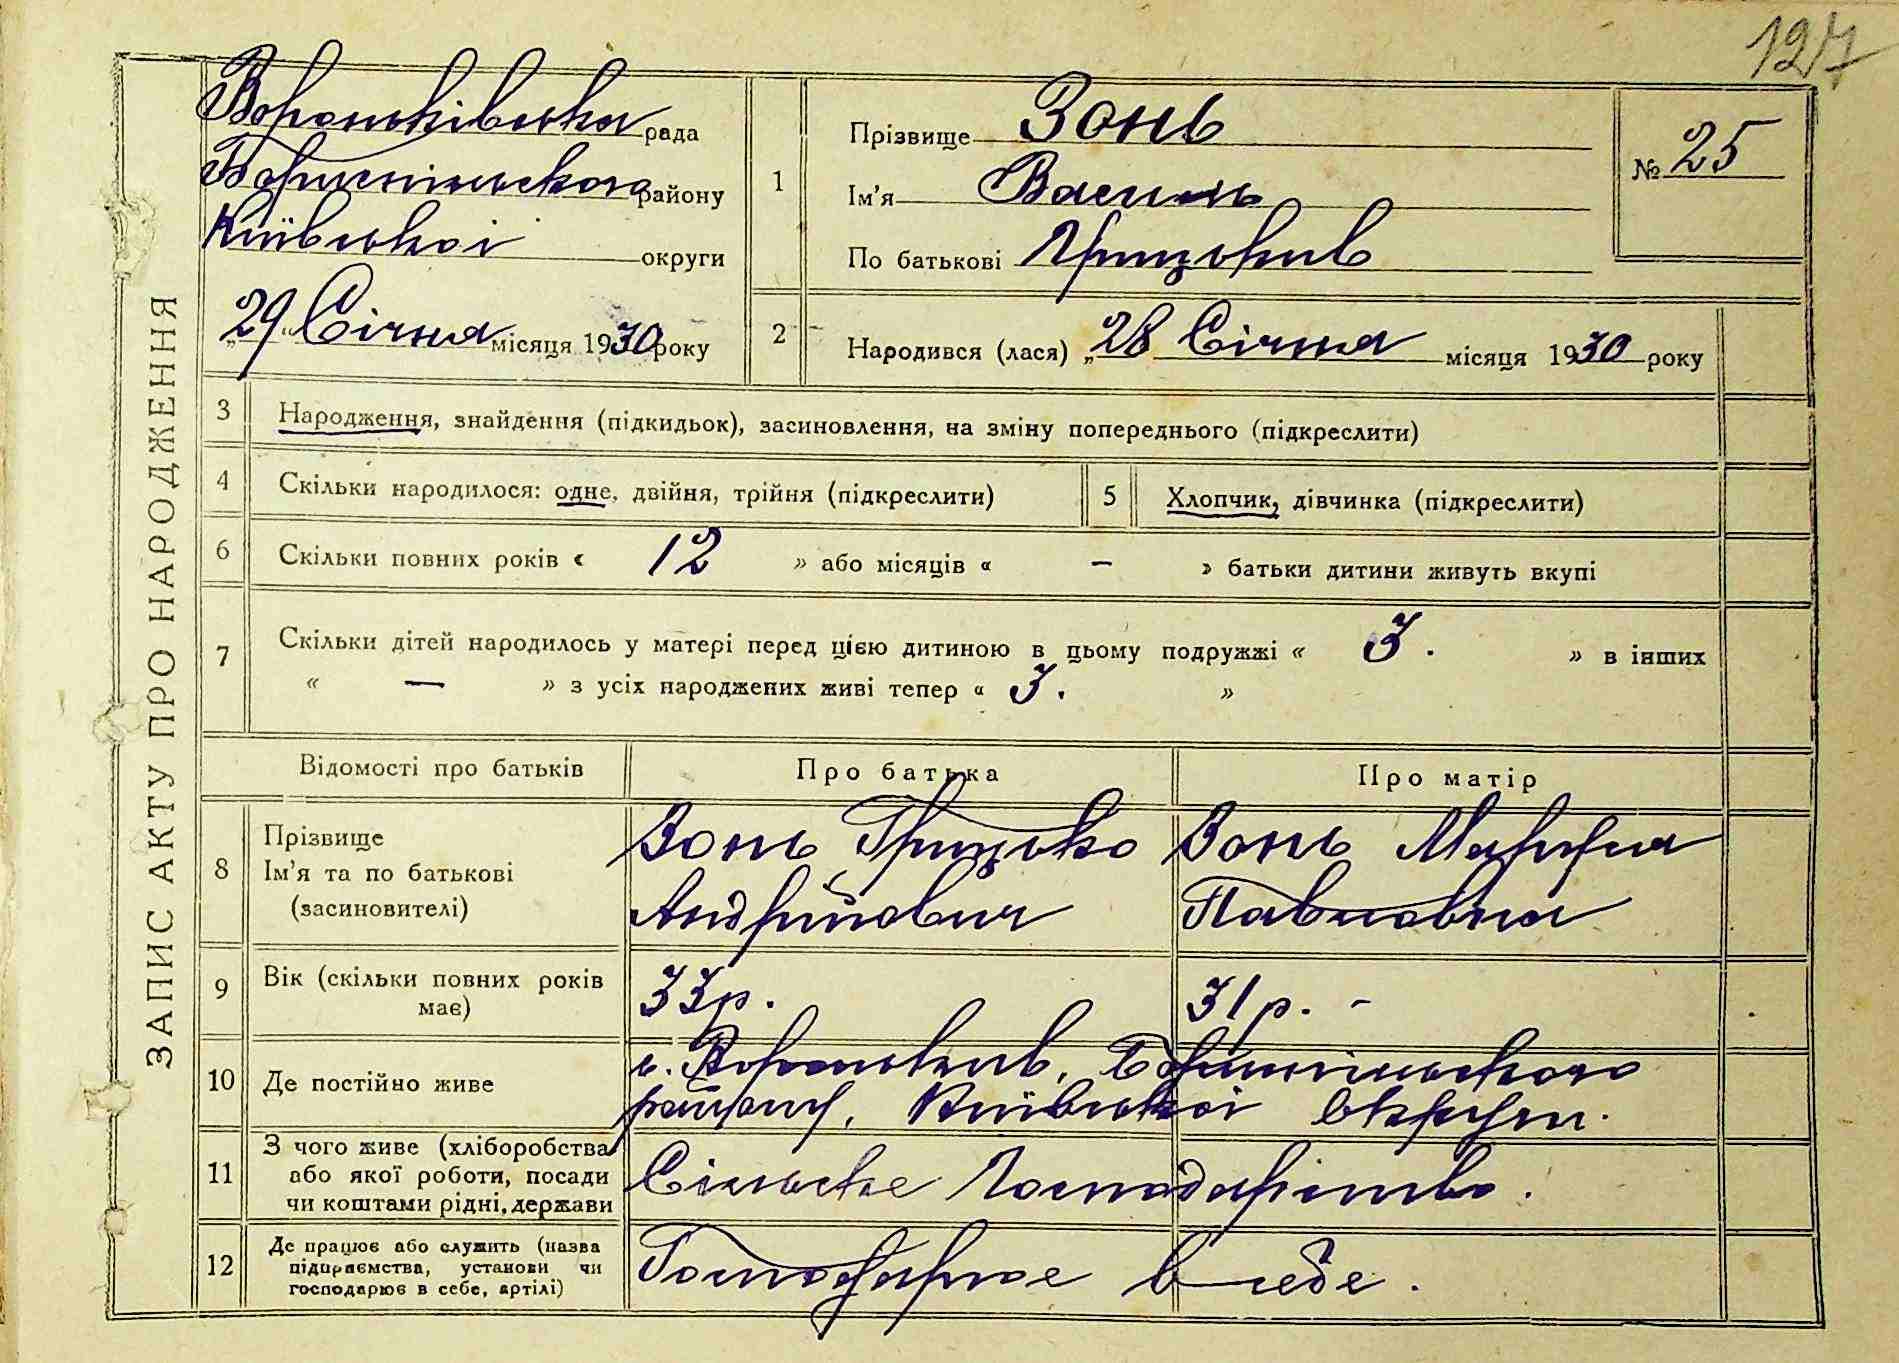 127
ЗАПИС АКТУ ПРО НАРОДЖЕННЯ
Вороньківська рада
Бориспільського району
Київської округи
„29" Січня місяця 1930 року
1
Прізвище Зонь
Ім'я Василь
По батькові Грицьків
№ 25
2
Народився (лася) „28 Січня місяця 1930 року
3 Народження, знайдення (підкидьок), засиновлення, на зміну попереднього (підкреслити)
4 Скільки народилося: одне, двійня, трійня (підкреслити) 5 Хлопчик, дівчинка (підкреслити)
6 Скільки повних років « 12 » або місяців « – » батьки дитини живуть вкупі
7 Скільки дітей народилось у матері перед цією дитиною в цьому подружжі « 3. » в інших
« — » з усіх народжених живі тепер « 3. »
Відомості про батьків Про батька Про матір
8 Прізвище
Ім'я та по батькові
(засиновителі)
Зонь Грицько
Андрійович
Зонь Марфа
Павловна
9 Вік (скільки повних років
має)
33р. 31р. -
10 Де постійно живе
с. Вороньків, Бориспільського
району, Київської округи.
11 З чого живе (хліборобства
або якої роботи, посади
чи коштами рідні, держави
Сільське господарство.
12 Де працює або служить (назва
підприємства, установи чи
господарює в себе, артілі)
Господарює в себе.